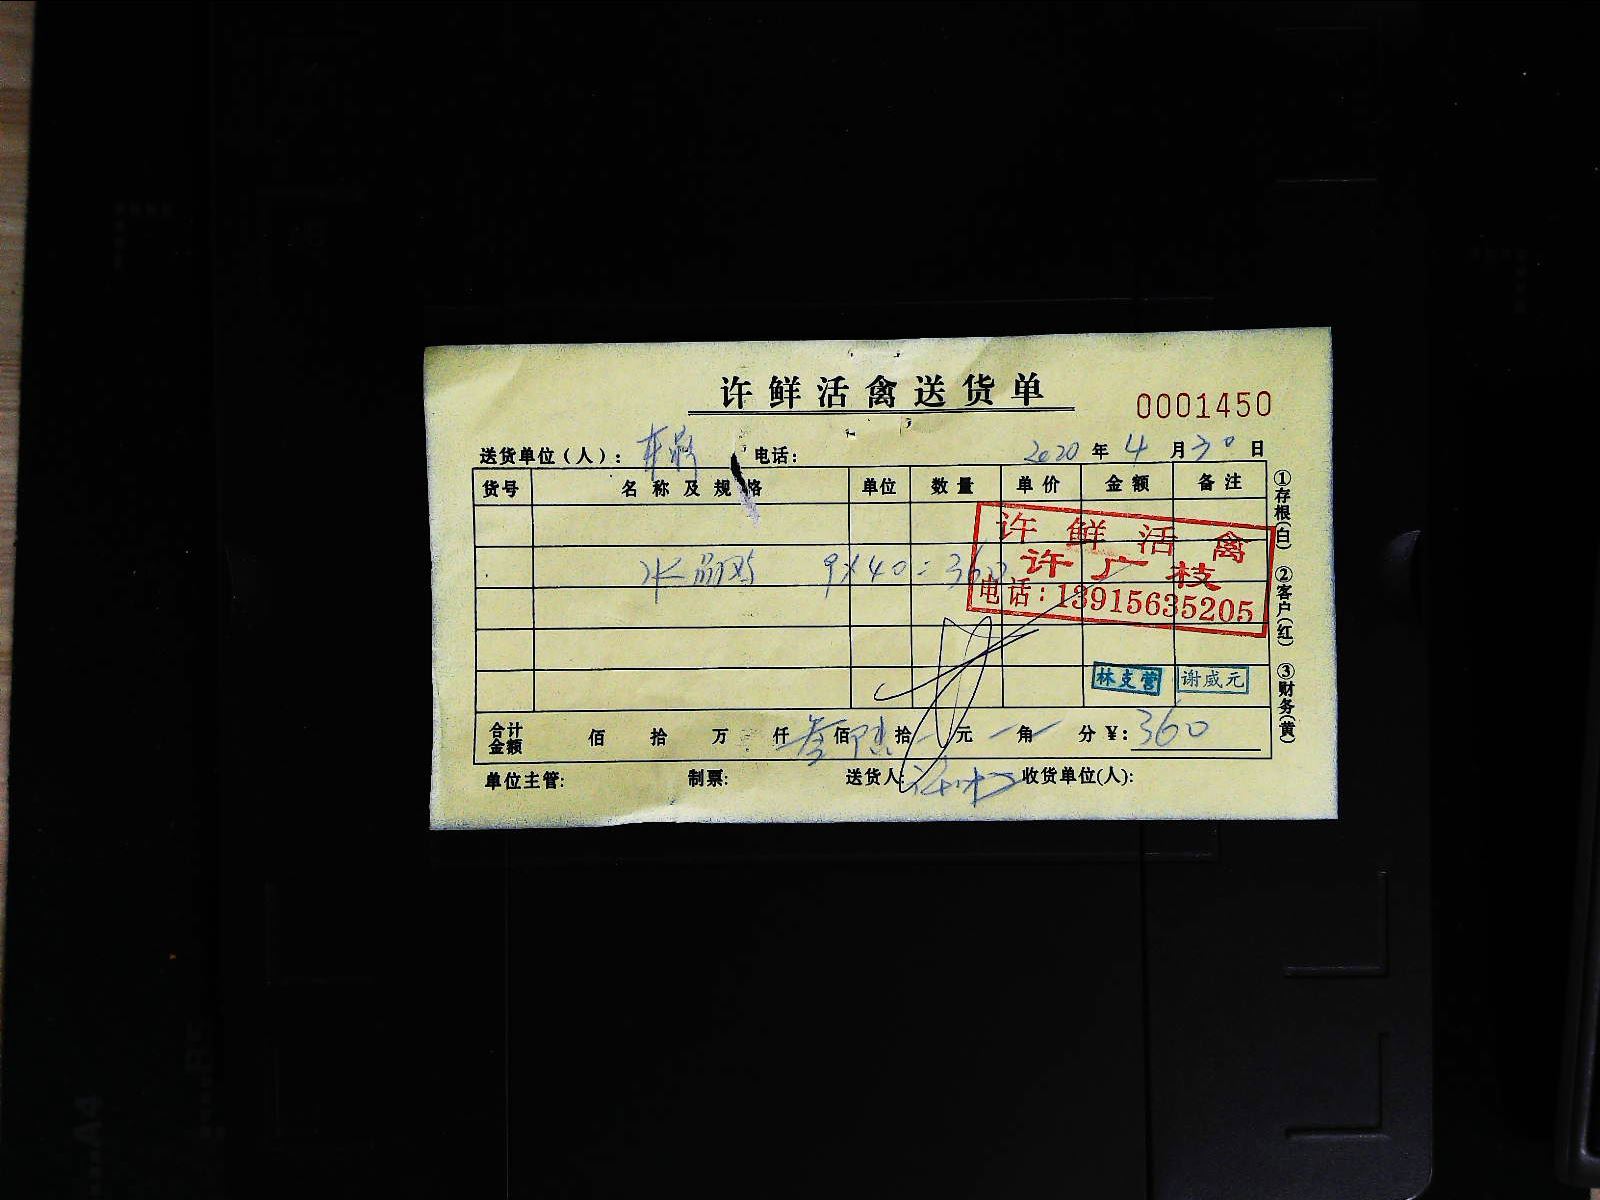 许鲜活禽送货单
0001450
送货单位（人）： 电话： 2020 年 4 月 30 日
货号 名称及规格 单位 数量 单价 金额 备注
许鲜活禽
水 9×40=360
许广枝
电话：13915635205
林支营 谢威元
合计金额 佰 拾 万 仟 叁佰 陆拾 元 角 分 ¥：360
单位主管: 制票: 送货人: 收货单位(人):
①存根(白) ②客户(红) ③财务(黄)